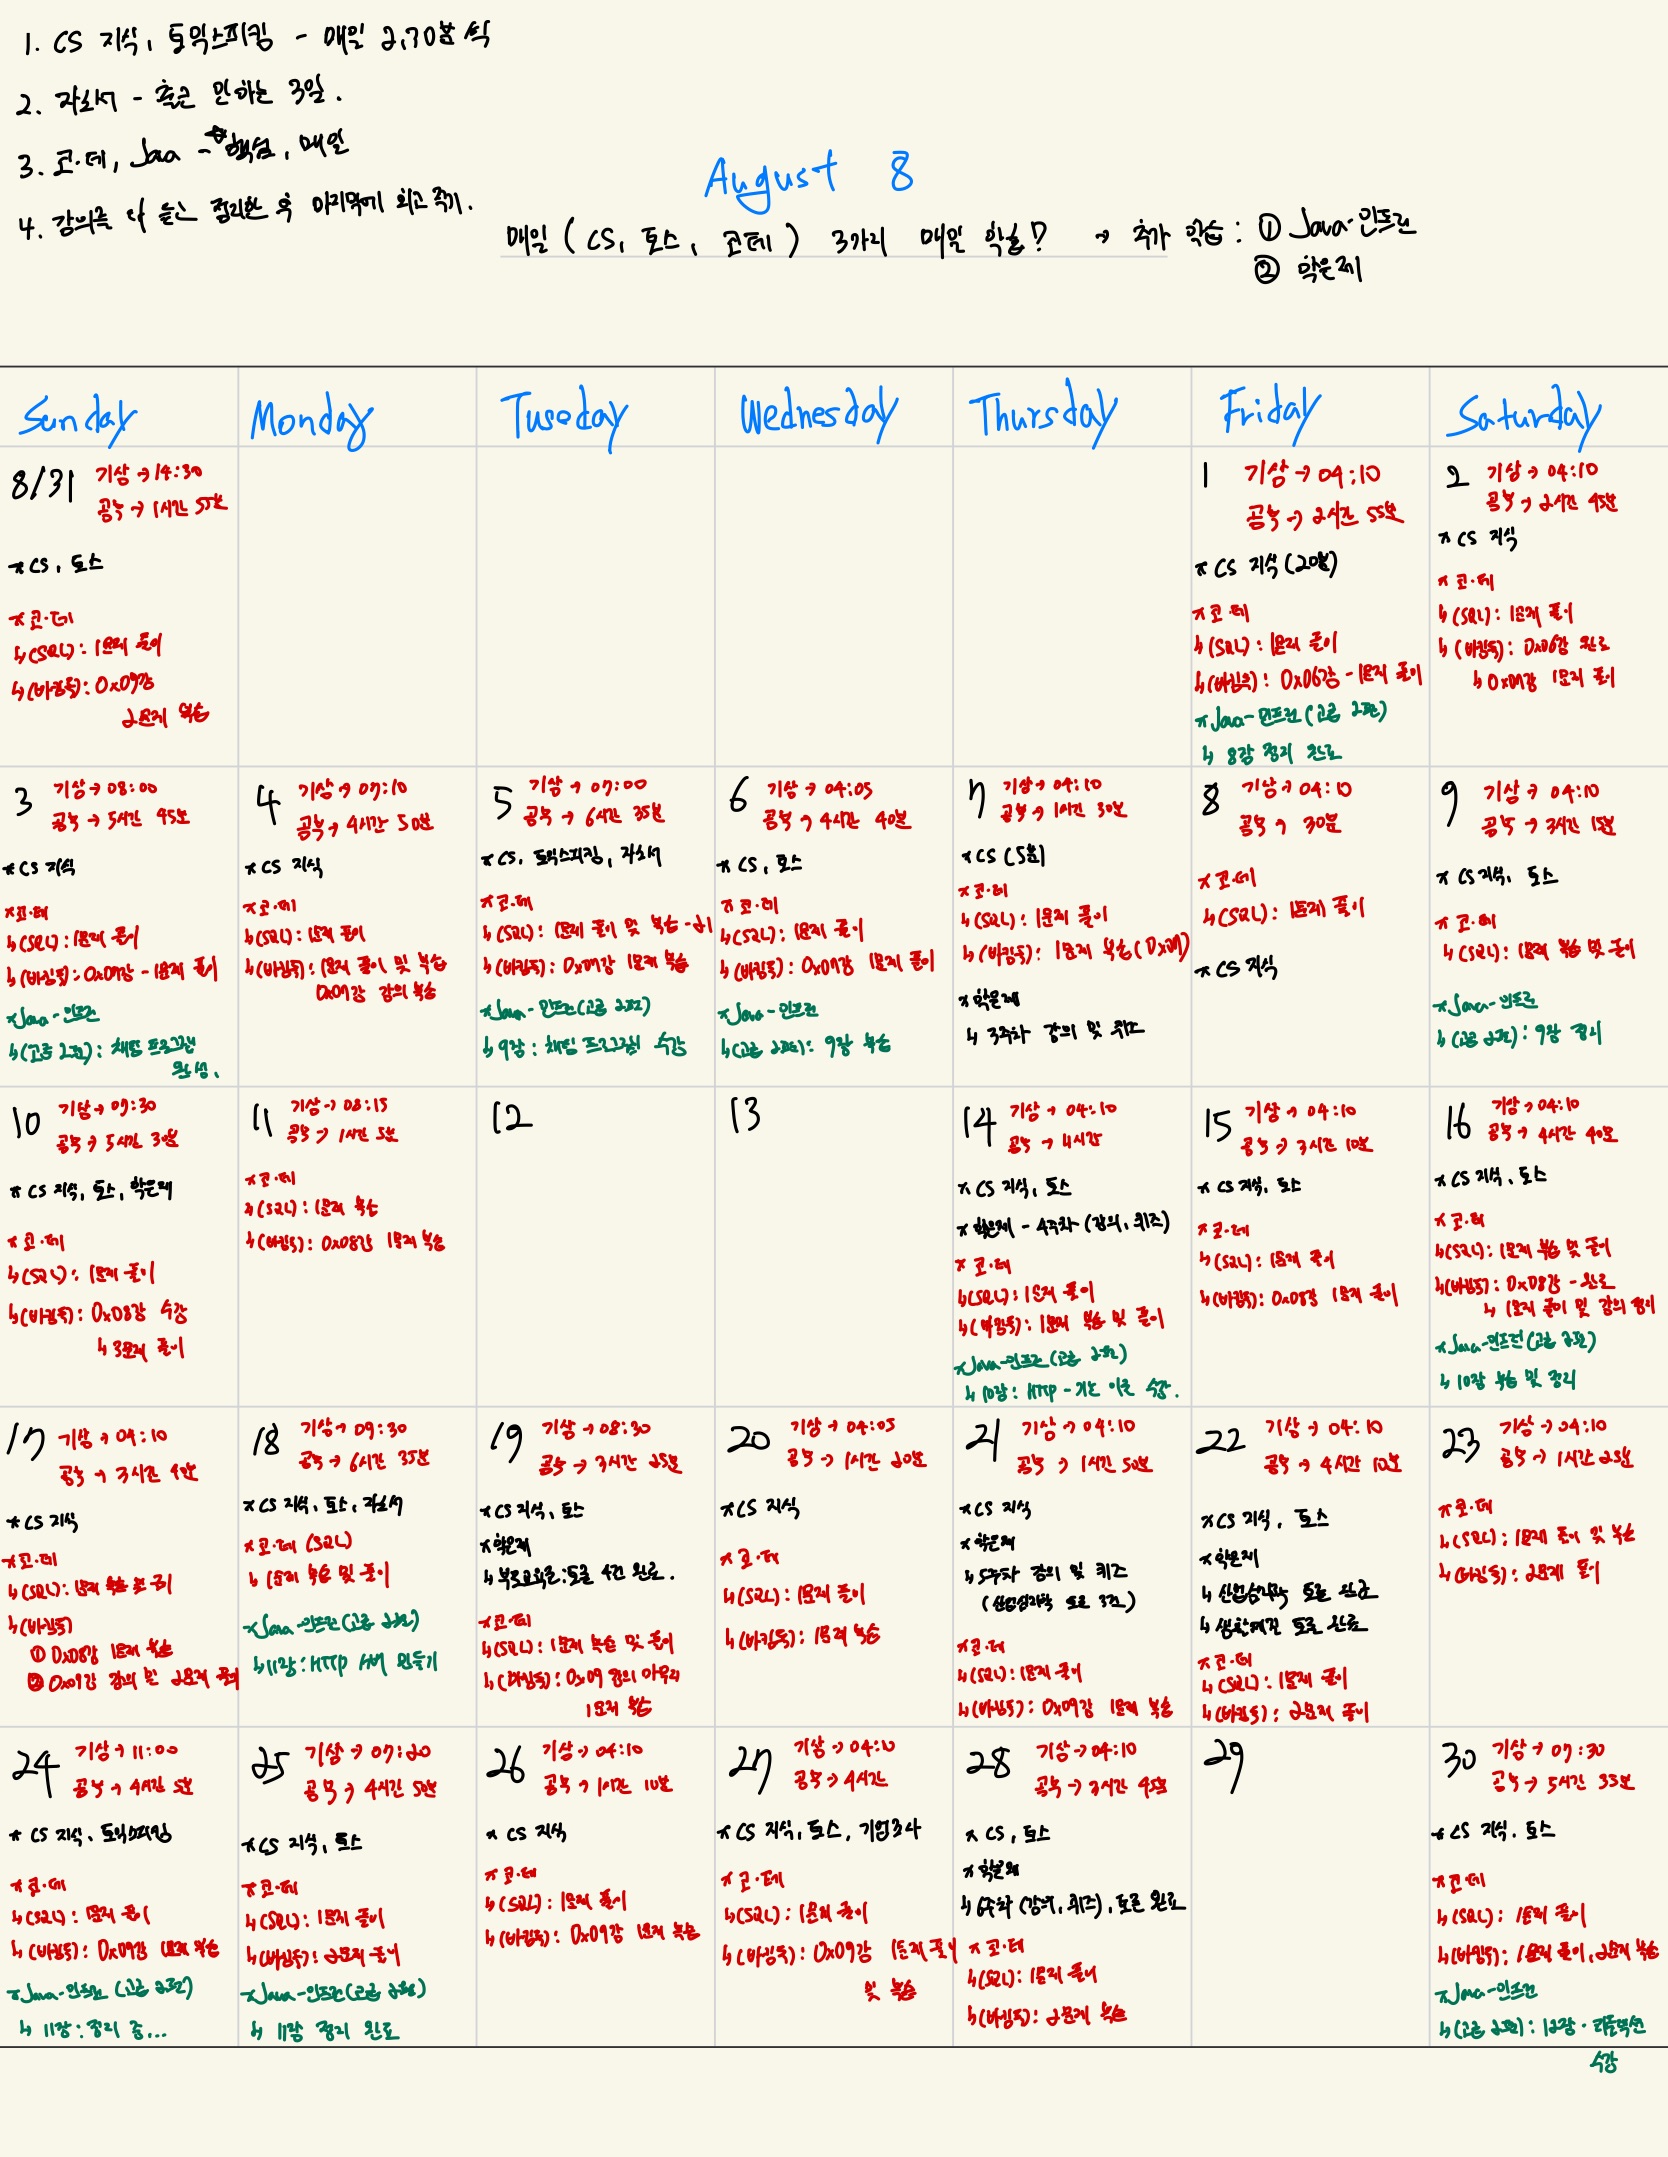 1. CS 지식, 토익스피킹 - 매일 2,30분 씩
2. 자소서 - 출근 안하는 3일.
3. 코.테, Java - 핵심, 매일
4. 강의를 다 듣고 정리한 후 마지막에 회고 쭉기.
August 8
매일 ( CS, 토스, 코테 ) 3가지 매일 학습? → 추가 학습 : ① Java-인프런
② 학은제
Sunday Monday Tuseday Wednesday Thursday Friday Saturday
8/31 기상→14:30
공부→1시간 55분
*CS, 토스
*코.테
↳(SQL): 1문제 풀이
↳(바킹독): 0x09강
2문제 복습
1 기상→04:10
공부→2시간 55분
*CS 지식(20분)
*코.테
↳(SQL): 1문제 풀이
↳(바킹독): 0x06강-1문제 풀이
*Java-인프런(고급 2편)
↳ 8강 정리 완료
2 기상→04:10
공부→2시간 45분
*CS 지식
*코.테
↳(SQL): 1문제 풀이
↳(바킹독): 0x06강 완료
↳0x07강 1문제 풀이
3 기상→08:00
공부→5시간 45분
*CS 지식
*코.테
↳(SQL): 1문제 풀이
↳(바킹독): 0x07강-1문제 풀이
*Java-인프런
↳(고급 2편): 채팅 프로그램
완성.
4 기상→07:10
공부→4시간 50분
*CS 지식
*코.테
↳(SQL): 1문제 풀이
↳(바킹독): 1문제 풀이 및 복습
0x07강 강의 복습
5 기상→07:00
공부→6시간 35분
*CS, 토익스피킹, 자소서
*코.테
↳(SQL): 1문제 풀이 및 복습-
↳(바킹독): 0x07강 1문제 복습
*Java-인프런(고급 2편)
↳9강: 채팅 프로그램 수강
6 기상→04:05
공부→4시간 40분
*CS, 토스
*코.테
↳(SQL): 1문제 풀이
↳(바킹독): 0x07강 1문제 풀이
*Java-인프런
↳(고급 2편): 9강 복습
7 기상→04:10
공부→1시간 30분
*CS (5분)
*코.테
↳(SQL): 1문제 풀이
↳(바킹독): 1문제 복습(0x07)
*학은제
↳3주차 강의 및 퀴즈
8 기상→04:10
공부→30분
*코.테
↳(SQL): 1문제 풀이
*CS 지식
9 기상→04:10
공부→3시간 15분
*CS지식, 토스
*코.테
↳(SQL): 1문제 복습 및 풀이
*Java-인프런
↳(고급 2편): 9강 정리
10 기상→07:30
공부→5시간 30분
*CS 지식, 토스, 학은제
*코.테
↳(SQL): 1문제 풀이
↳(바킹독): 0x08강 수강
↳3문제 풀이
11 기상→08:15
공부→1시간 5분
*코.테
↳(SQL): 1문제 복습
↳(바킹독): 0x08강 1문제 복습
12
13
14 기상→04:10
공부→4시간
*CS 지식, 토스
*학은제-4주차(강의, 퀴즈)
*코.테
↳(SQL): 1문제 풀이
↳(바킹독): 1문제 복습 및 풀이
*Java-인프런(고급 2편)
↳10강: HTTP-기본 이론 수강.
15 기상→04:10
공부→3시간 10분
*CS 지식, 토스
*코.테
↳(SQL): 1문제 풀이
↳(바킹독): 0x08강 1문제 풀이
16 기상→04:10
공부→4시간 40분
*CS 지식, 토스
*코.테
↳(SQL): 1문제 복습 및 풀이
↳(바킹독): 0x08강-완료
↳1문제 풀이 및 강의 정리
*Java-인프런(고급 2편)
↳10강 복습 및 정리
17 기상→04:10
공부→3시간 4분
*CS 지식
*코.테
↳(SQL): 1문제 복습 및 풀이
↳(바킹독)
① 0x08강 1문제 복습
② 0x09강 강의 및 2문제 풀이
18 기상→09:30
공부→6시간 35분
*CS 지식, 토스, 자소서
*코.테 (SQL)
↳1문제 복습 및 풀이
*Java-인프런(고급 2편)
↳11강: HTTP 서버 만들기
19 기상→08:30
공부→3시간 25분
*CS 지식, 토스
*학은제
↳부모교육론:토론 4건 완료.
*코.테
↳(SQL): 1문제 복습 및 풀이
↳(바킹독): 0x09 강의 마무리
1문제 복습
20 기상→04:05
공부→1시간 20분
*CS 지식
*코.테
↳(SQL): 1문제 풀이
↳(바킹독): 1문제 복습
21 기상→04:10
공부→1시간 50분
*CS 지식
*학은제
↳5주차 강의 및 퀴즈
(산업심리학 토론 3건)
*코.테
↳(SQL): 1문제 풀이
↳(바킹독): 0x09강 1문제 복습
22 기상→04:10
공부→4시간 10분
*CS 지식, 토스
*학은제
↳산업심리학 토론 완료
↳생활예절 토론 완료
*코.테
↳(SQL): 1문제 풀이
↳(바킹독): 2문제 풀이
23 기상→04:10
공부→1시간 25분
*코.테
↳(SQL): 1문제 풀이 및 복습
↳(바킹독): 2문제 풀이
24 기상→11:00
공부→4시간 5분
*CS 지식, 토익스피킹
*코.테
↳(SQL): 1문제 풀이
↳(바킹독): 0x09강 1문제 복습
*Java-인프런 (고급 2편)
↳11강: 정리 중...
25 기상→07:20
공부→4시간 50분
*CS 지식, 토스
*코.테
↳(SQL): 1문제 풀이
↳(바킹독): 2문제 풀이
*Java-인프런(고급 2편)
↳11강 정리 완료
26 기상→04:10
공부→1시간 10분
*CS 지식
*코.테
↳(SQL): 1문제 풀이
↳(바킹독): 0x09강 1문제 복습
27 기상→04:10
공부→4시간
*CS 지식, 토스, 기업조사
*코.테
↳(SQL): 1문제 풀이
↳(바킹독): 0x09강 1문제 풀이
및 복습
28 기상→04:10
공부→3시간 45분
*CS, 토스
*학은제
↳6주차 (강의, 퀴즈), 토론 완료
*코.테
↳(SQL): 1문제 풀이
↳(바킹독): 2문제 복습
29
30 기상→07:30
공부→5시간 33분
*CS 지식, 토스
*코.테
↳(SQL): 1문제 풀이
↳(바킹독): 1문제 풀이, 2문제 복습
*Java-인프런
↳(고급 2편): 12강. 리플렉션
수강